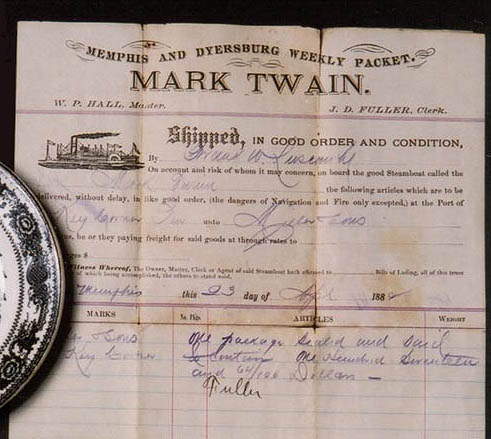 MEMPHIS AND DYERSBURG WEEKLY PACKET.
MARK TWAIN.
W. P. HALL, Master. J. D. FULLER, Clerk.
Shipped, IN GOOD ORDER AND CONDITION,
By W.
On account and risk of whom it may concern, on board the good Steamboat called the
Mark Twain the following articles which are to be
delivered, without delay, in like good order, (the dangers of Navigation and Fire only excepted,) at the Port of
Key Corner unto Sons
he or they paying freight for said goods at through rates to
Witness Whereof, The Owner, Master, Clerk or Agent of said Steamboat hath affirmed to Bills of Lading, all of this tenor
of which being accomplished, the others to stand void.
Memphis this 23 day of Apl 188
MARKS ARTICLES WEIGHT
Sons One package Sealed and Said
Key Corner to Contain One Hundred Seventeen
and 64/100 Dollars —
Fuller